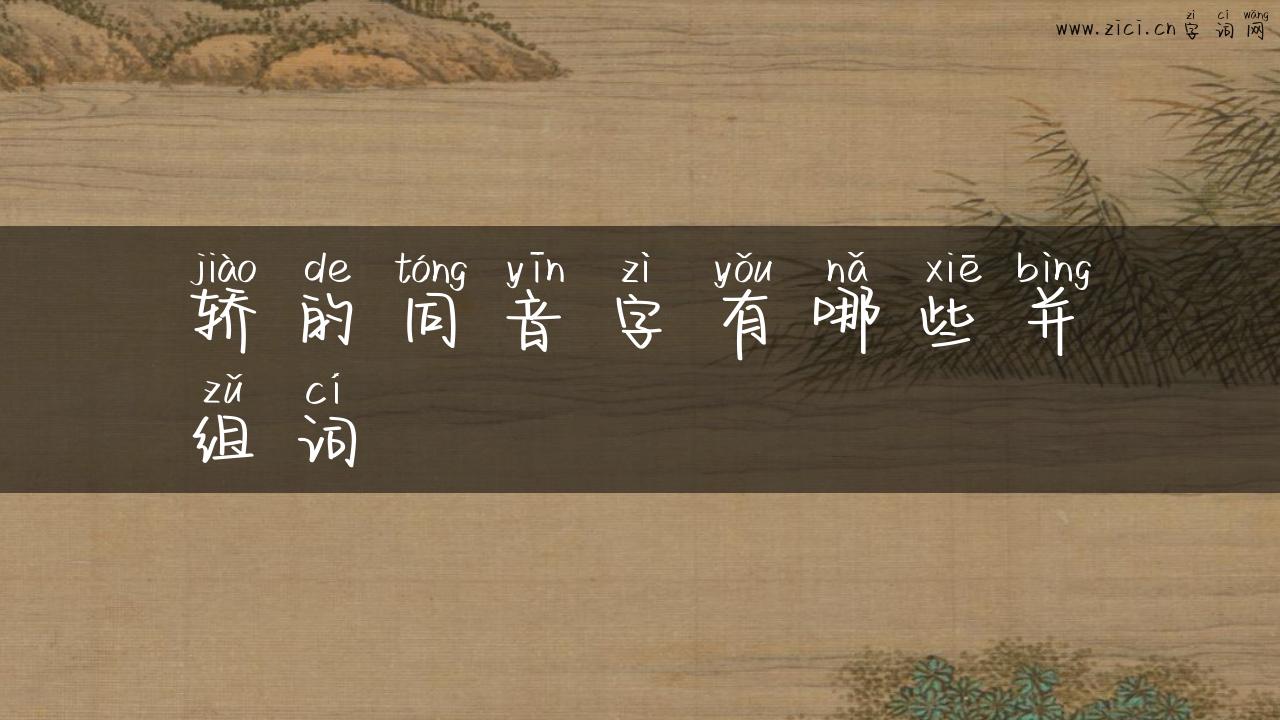 zì cí wǎng
www.zici.cn 字词网
jiào de tóng yīn zì yǒu nǎ xiē bìng
轿的同音字有哪些并
zǔ cí
组词